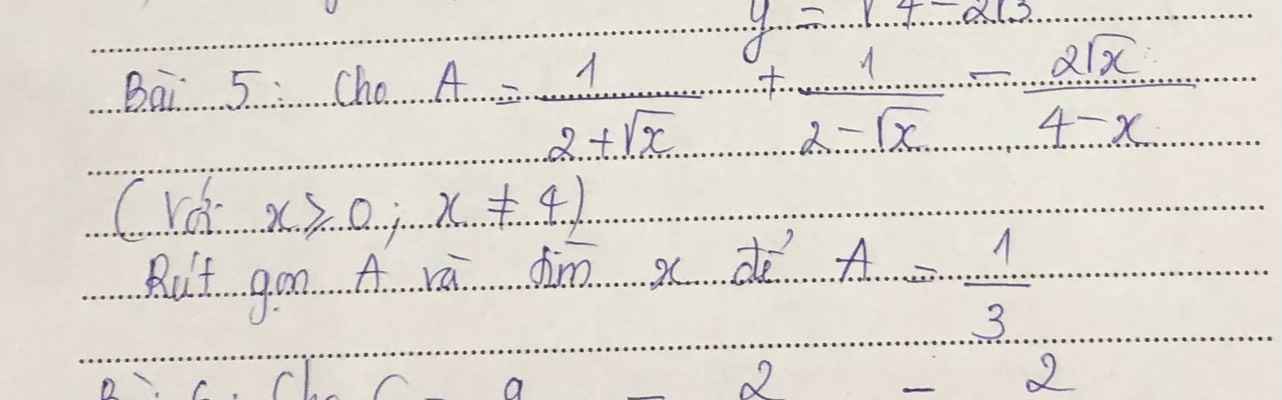 y = √4-2√3
Bài 5: Cho A = 1/(2+√x) + 1/(2-√x) - 2√x/(4-x)
(Với x ≥ 0; x ≠ 4)
Rút gọn A và tìm x để A = 1/3